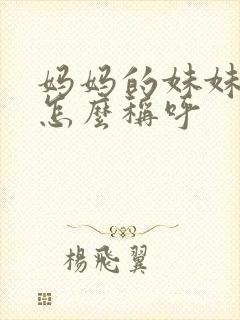 妈妈的妹妹
怎麼稱呼
楊飛翼